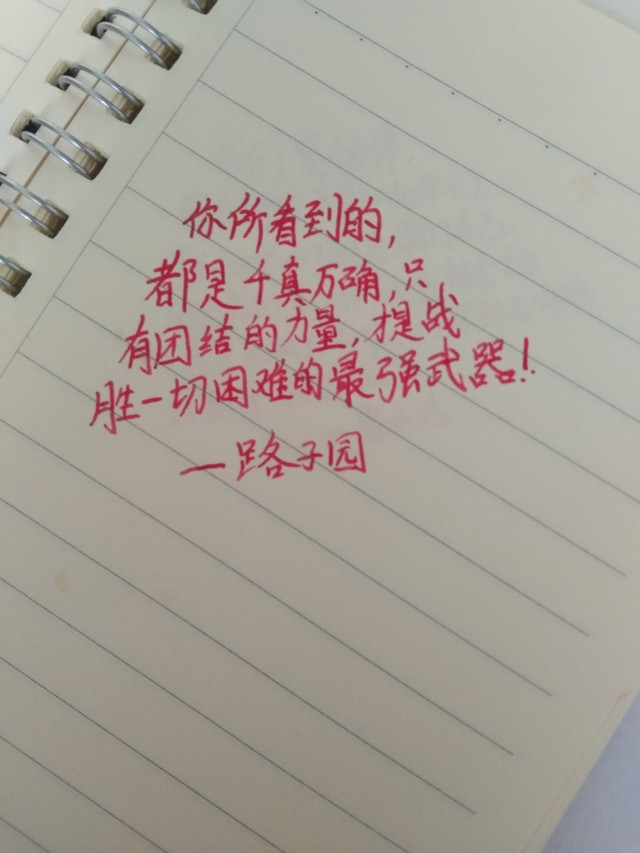 你所看到的,
都是千真万确,只
有团结的力量,提战
胜一切困难的最强武器!
—路子园